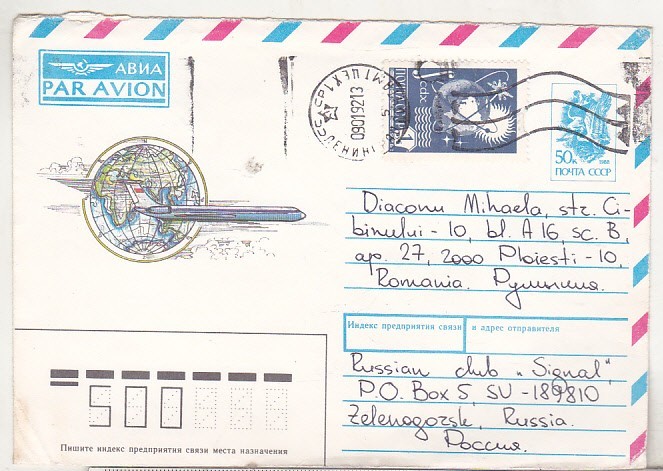 АВИА
PAR AVION
СССР
ЛЕНИНГ
09019213
ПОЧТА
50к
1988
ПОЧТА СССР
Diaconu Mihaela, str. Ci-
binului - 10, bl. A 16, sc. B,
ap. 27, 2000 Ploiesti - 10,
Romania. Румыния.
Индекс предприятия связи и адрес отправителя
Russian club "Signal",
P.O. Box 5, SU - 189810
Zelenogorsk, Russia.
Россия.
500
Пишите индекс предприятия связи места назначения